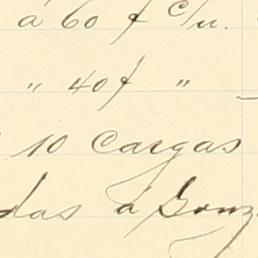 á 60 ¢ c/u.
" 40 ¢ "
10 Cargas
das á Gonz